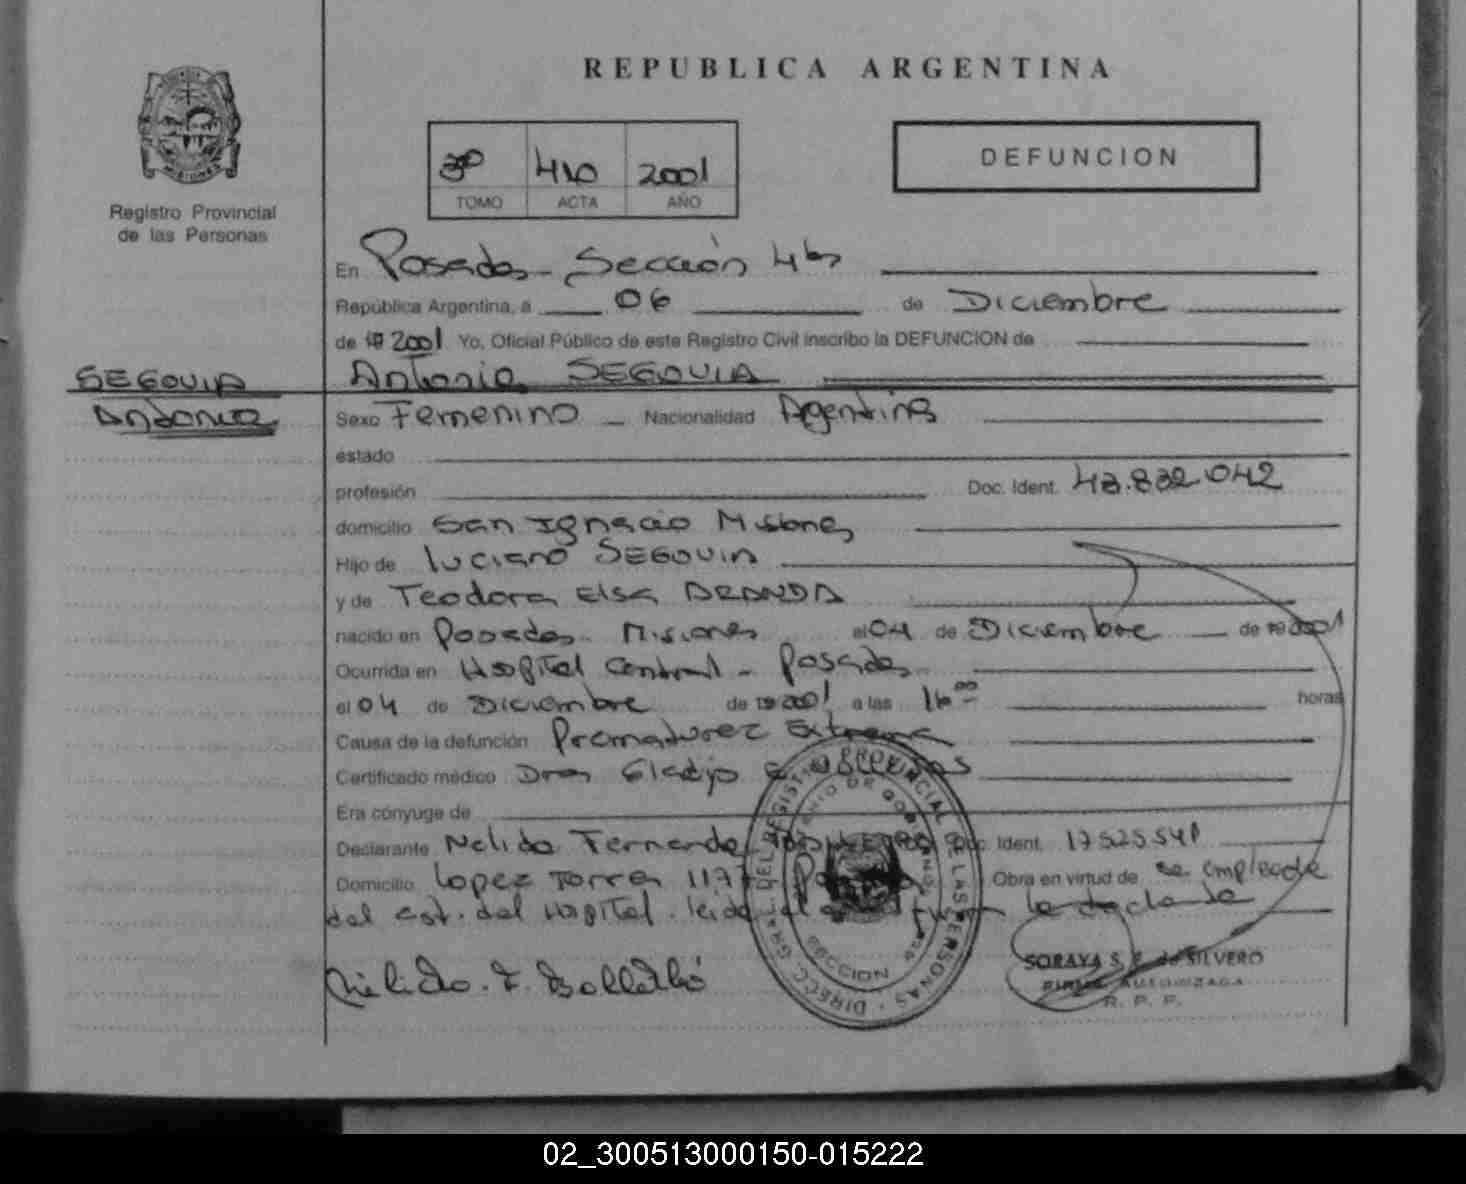 REPUBLICA ARGENTINA
MISIONES
Registro Provincial
de las Personas
3º 410 2001
TOMO ACTA AÑO
DEFUNCION
En Posadas - Sección 4ta
República Argentina, a 06 de Diciembre
de 19 2001 Yo, Oficial Público de este Registro Civil inscribo la DEFUNCION de
SEGOVIA
Antonia
Antonia SEGOVIA
Sexo Femenino Nacionalidad Argentina
estado
profesión Doc. Ident. 43.832.042
domicilio San Ignacio Misiones
Hijo de Luciano SEGOVIA
y de Teodora Elsa ARANDA
nacido en Posadas - Misiones el 04 de Diciembre de 19 2001
Ocurrida en Hospital Central - Posadas
el 04 de Diciembre de 19 2001 a las 16 00 horas
Causa de la defunción Prematurez Extrema
Certificado médico Dra Gladys
Era cónyuge de
Declarante Nelida Fernanda Doc. Ident. 17525541
Domicilio Lopez Torres 1177 Obra en virtud de se empleada
del est. del Hospital. leida el la declarante
SORAYA S. de SILVERO
FIRMA AUTORIZADA
R. P. P.
DIRECC. GRAL. DEL REGISTRO PROVINCIAL DE LAS PERSONAS
SECCION
02_300513000150-015222